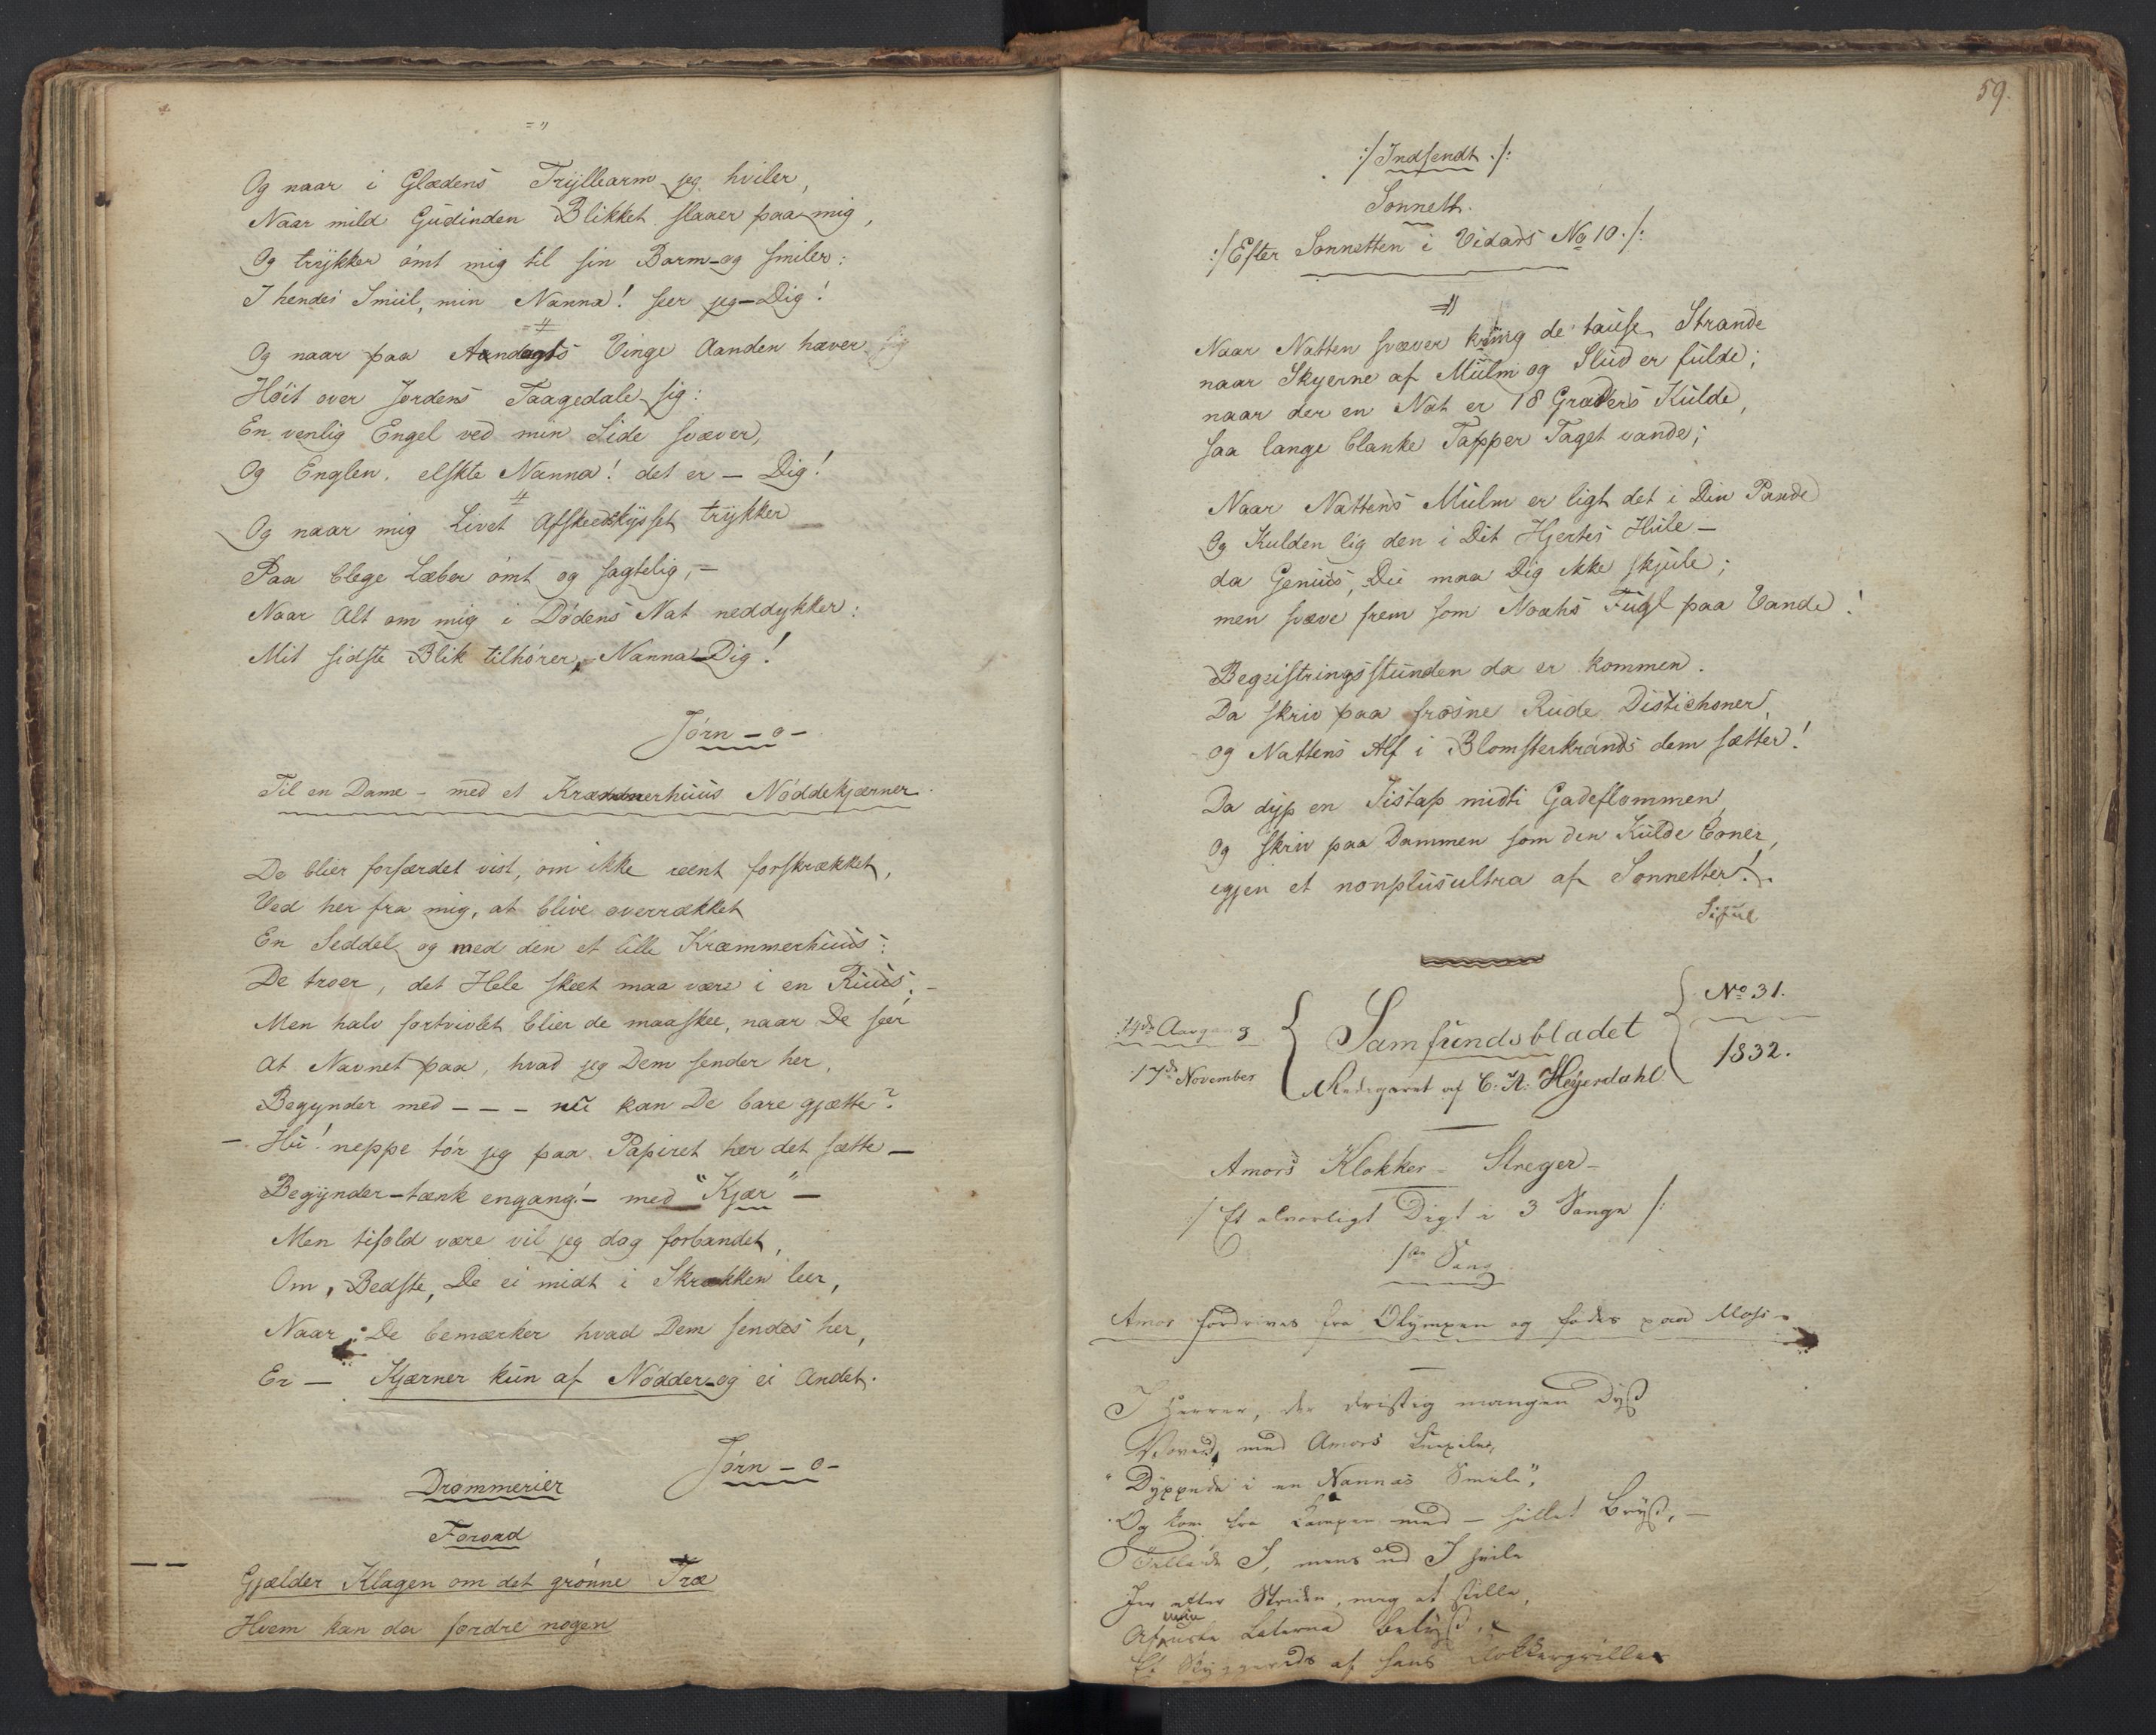 = "
Og naar i Glædens Tryllearm jeg hviler,
Naar mild Gudinden Blikket slaaer paa mig,
Og trykker ömt mig til sin Barm og smiler:
I hendes Smiil, min Nanna! seer jeg – Dig!
Og naar paa Aandagts Vinge Aanden hæver sig
Høit over Jordens Taagedale sig:
En venlig Engel ved min Side svæver,
Og Englen, elskte Nanna! det er – Dig!
Og naar mig Livet Afskeedskysset trykker
Paa blege Læber ömt og sagtelig, –
Naar Alt om mig i Dödens Nat neddykker:
Mit sidste Blik tilhörer, Nanna – Dig!
Jörn – o –
Til en Dame – med et Kræmmerhuus Nöddekjærner.
De blier forfærdet vist, om ikke reent forskrækket,
Ved her fra mig, at blive overrækket
En Seddel og med den et lille Kræmmerhuus:
De troer, det Hele skeet maa være i en Ruus. –
Men halv fortvivlet blier de maaskee, naar De seer
At Navnet paa, hvad jeg Dem sender her,
Begynder med – – – nu kan De bare gjætte?
– Hu! neppe tör jeg paa Papiret her det sætte –
Begynder – tænk engang! – med "Kjær" –
Men tifold være vil jeg dog forbandet,
Om, Bedste, De ei midt i Skrækken leer,
Naar De bemærker hvad Dem sendes her,
Er – Kjærner kun af Nödder – og ei Andet.
Jörn – o –
Drømmerier
Forord
Gjælder Klagen om det grönne Træ
Hvem kan da fordre nogen
59.
:/ Indsendt ./:
Sonnett.
:/ Efter Sonnetten i Vidars No 10./:
Naar Natten svæver kring de tause Strande
naar Skyerne af Mulm og Slud er fulde;
naar der en Nat er 18 Graders Kulde,
saa lange blanke Tapper Taget vande;
Naar Nattens Mulm er ligt det i Din Pande
Og Kulden lig den i Dit Hjertes Hule –
da Genius, Du maa Dig ikke skjule;
men svæve frem som Noahs Fugl paa Vande!
Begeistringsstunden da er kommen.
Da skriv paa frosne Rude Distichoner,
og Nattens Alf i Blomsterkrands dem sætter!
Da dyp en Iistap midti Gadeflommen,
Og skriv paa Dammen som den Kulde Eoner,
igjen et nonplusultra af Sonnetter!
Siful
14de Aargang
17de November
Samfundsbladet
Redigeret af C. A. Heyerdahl
No 31.
1832.
Amors Klokker-Streger –
:/ Et alvorligt Digt i 3 Sange /:
1ste Sang
Amor fordrives fra Olympen og fødes paa Mosi –
I Herrer, der dristig mangen Dyst
Voved, med Amors Piile,
"Dyppede i en Nannas Smiil",
Og kom fra Kampen med – saaret Bryst, –
Tillade I, mens ud I hvile
Jer efter Striden, mig at stille,
min
Laterna belyst,
Et af hans Klokkergriller